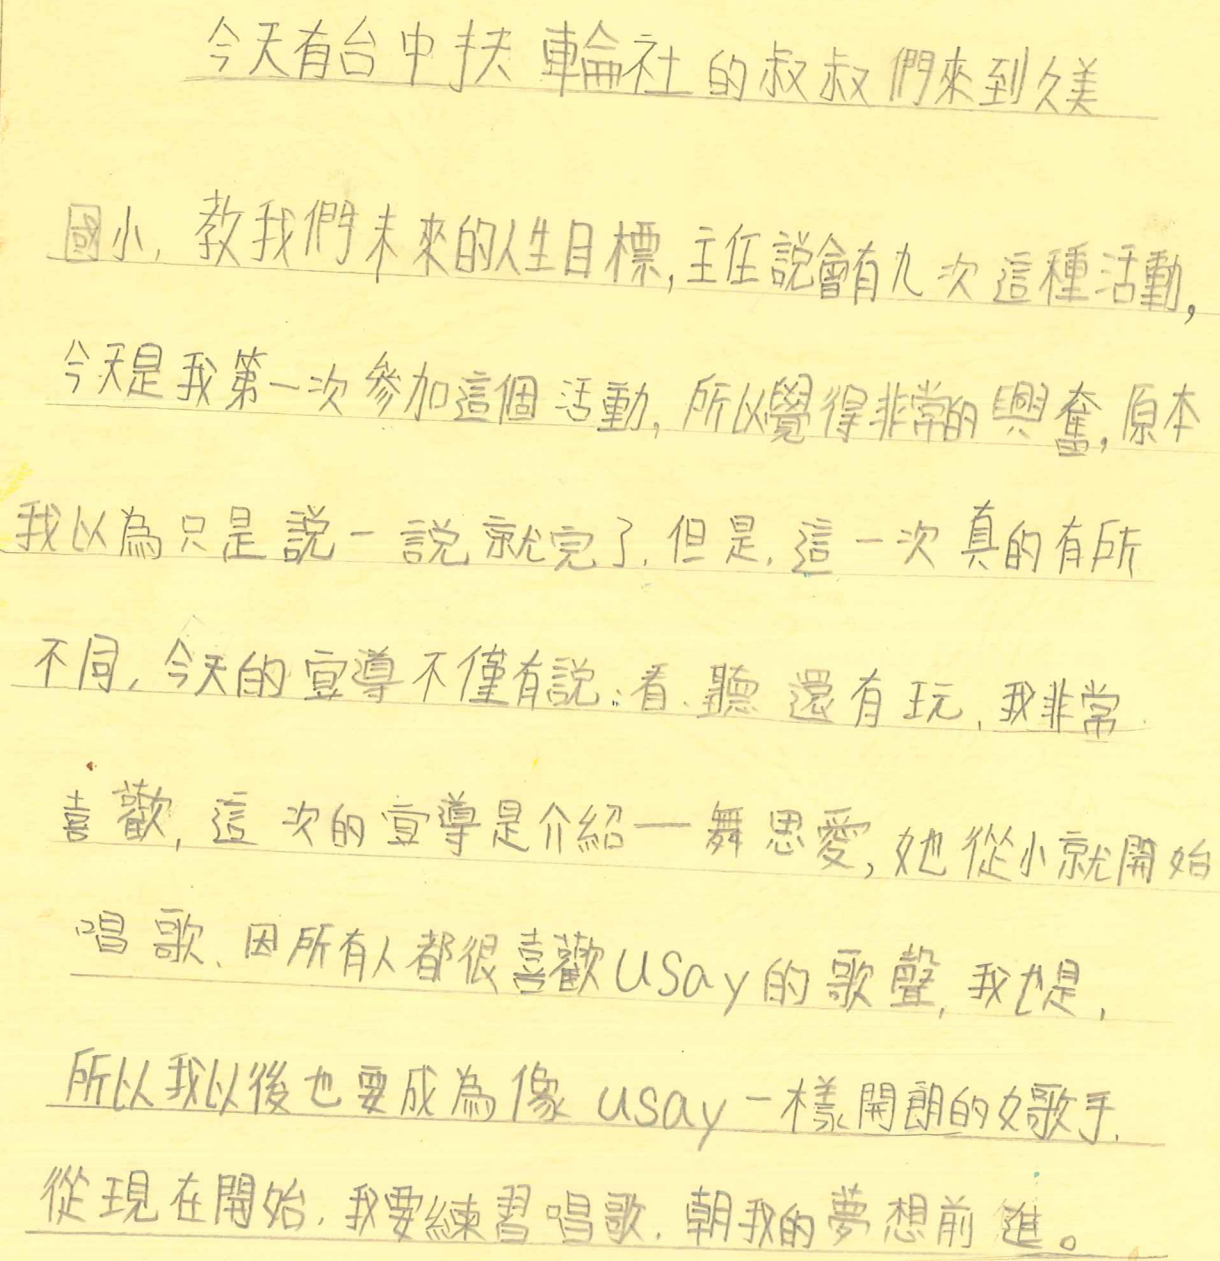 今天有台中扶輪社的叔叔們來到久美
國小,教我們未來的人生目標,主任說會有九次這種活動,
今天是我第一次參加這個活動,所以覺得非常的興奮,原本
我以為只是說一說就完了,但是,這一次真的有所
不同,今天的宣導不僅有說、看、聽還有玩,我非常
喜歡,這次的宣導是介紹一舞思愛,她從小就開始
唱歌、因所有人都很喜歡usay的歌聲,我也是,
所以我以後也要成為像usay一樣開朗的女歌手,
從現在開始,我要練習唱歌,朝我的夢想前進。